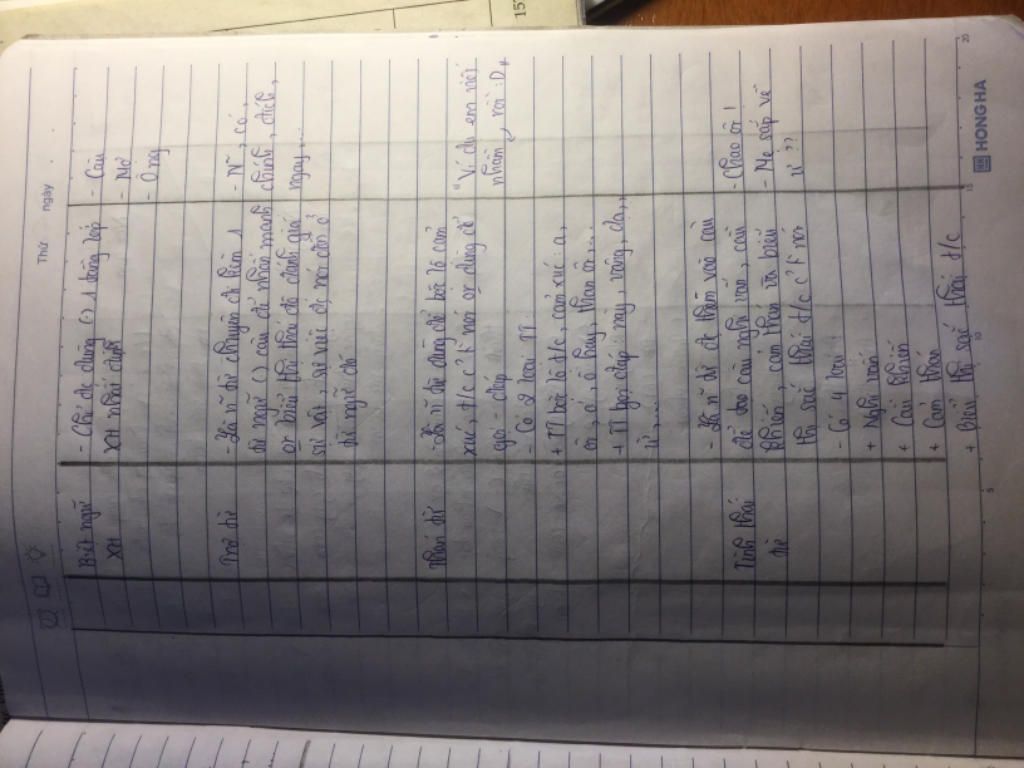 Thứ ngày
Biệt ngữ XH
- Chỉ đc dùng () 1 tầng lớp
XH nhất định
- Cậu
- Mợ
- Ông
Trợ từ
- Là ~ từ chuyên đi kèm 1
từ ngữ () câu để nhấn mạnh
or biểu thị thái độ đánh giá
sự vật, sự việc đc nói đến ở
từ ngữ đó
- ~, có,
chính, đích,
ngay...
Thán từ
- Là ~ từ dùng để bộc lộ cảm
xúc, t/c c' ng nói or dùng để
gọi - đáp
- Có 2 loại TT
+ TT bộc lộ t/c, cảm xúc: a,
ôi, ô hay, than ôi...
+ TT gọi đáp: này, vâng, dạ,
ừ,...
"Ví dụ em nói
nhầm rồi :D"
Tình thái từ
- Là ~ từ đc thêm vào câu
để tạo câu nghi vấn, câu
khiến, cảm thán và biểu
thị sắc thái t/c c' ng nói
- Có 4 loại:
+ Nghi vấn
+ Cầu khiến
+ Cảm thán
+ Biểu thị sắc thái t/c
- Chao ôi!
- Mẹ sắp về
ư??
5
10
15
20
HONG HA
15